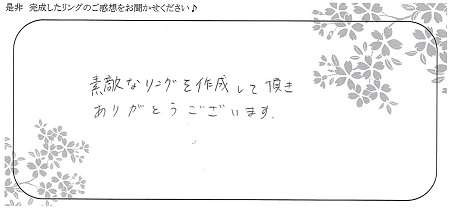 是非 完成したリングのご感想をお聞かせください♪
素敵なリングを作成して頂き
ありがとうございます.